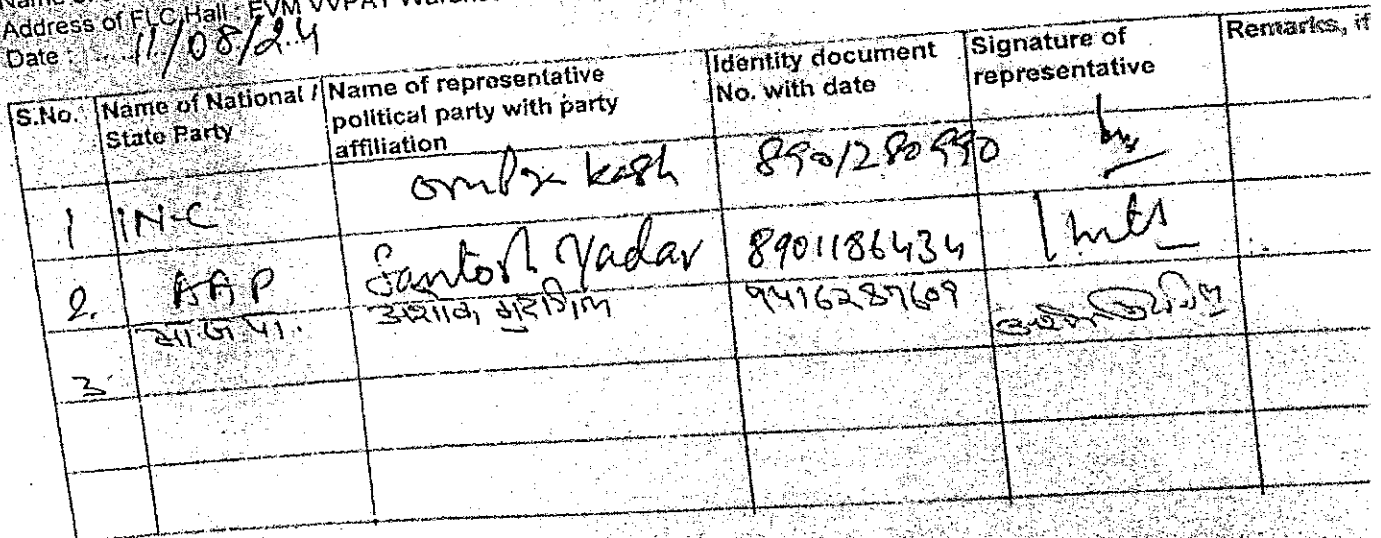 Address of FLC Hall : EVM VVPAT
Date : 11/08/24
S.No. Name of National / State Party Name of representative political party with party affiliation Identity document No. with date Signature of representative Remarks, if
1 INC omprakash 8901280990
2. AAP Santosh Yadav 8901186434
3 भाजपा. अशोक 9416287609